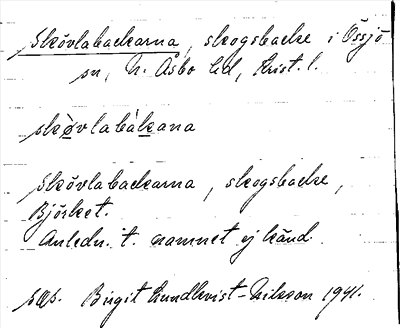 Skövlabackarna, skogsbacke i Össjö
sn, N. Åsbo hd, Krist. l.
skøvlabákana
Skövlabackarna, skogsbacke,
Björket.
Anledn. t. namnet ej känd.
sas. Birgit Lundkvist-Nilsson 1941.